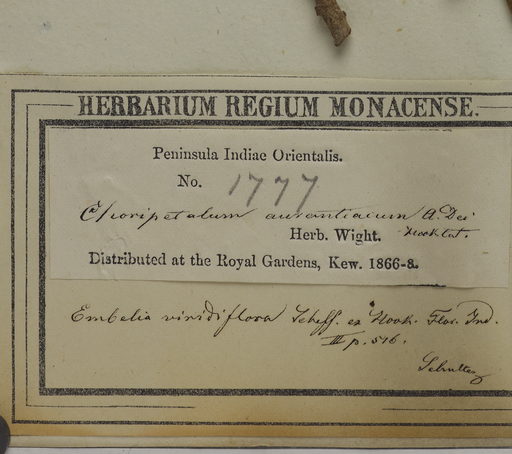 HERBARIUM REGIUM MONACENSE.
Peninsula Indiae Orientalis.
No. 1777
Choripetalum aurantiacum A. Dec
Herb. Wight.
Distributed at the Royal Gardens, Kew. 1866-8.
Embelia viridiflora Scheff. ex Hook. Flor. Ind.
III p. 516.